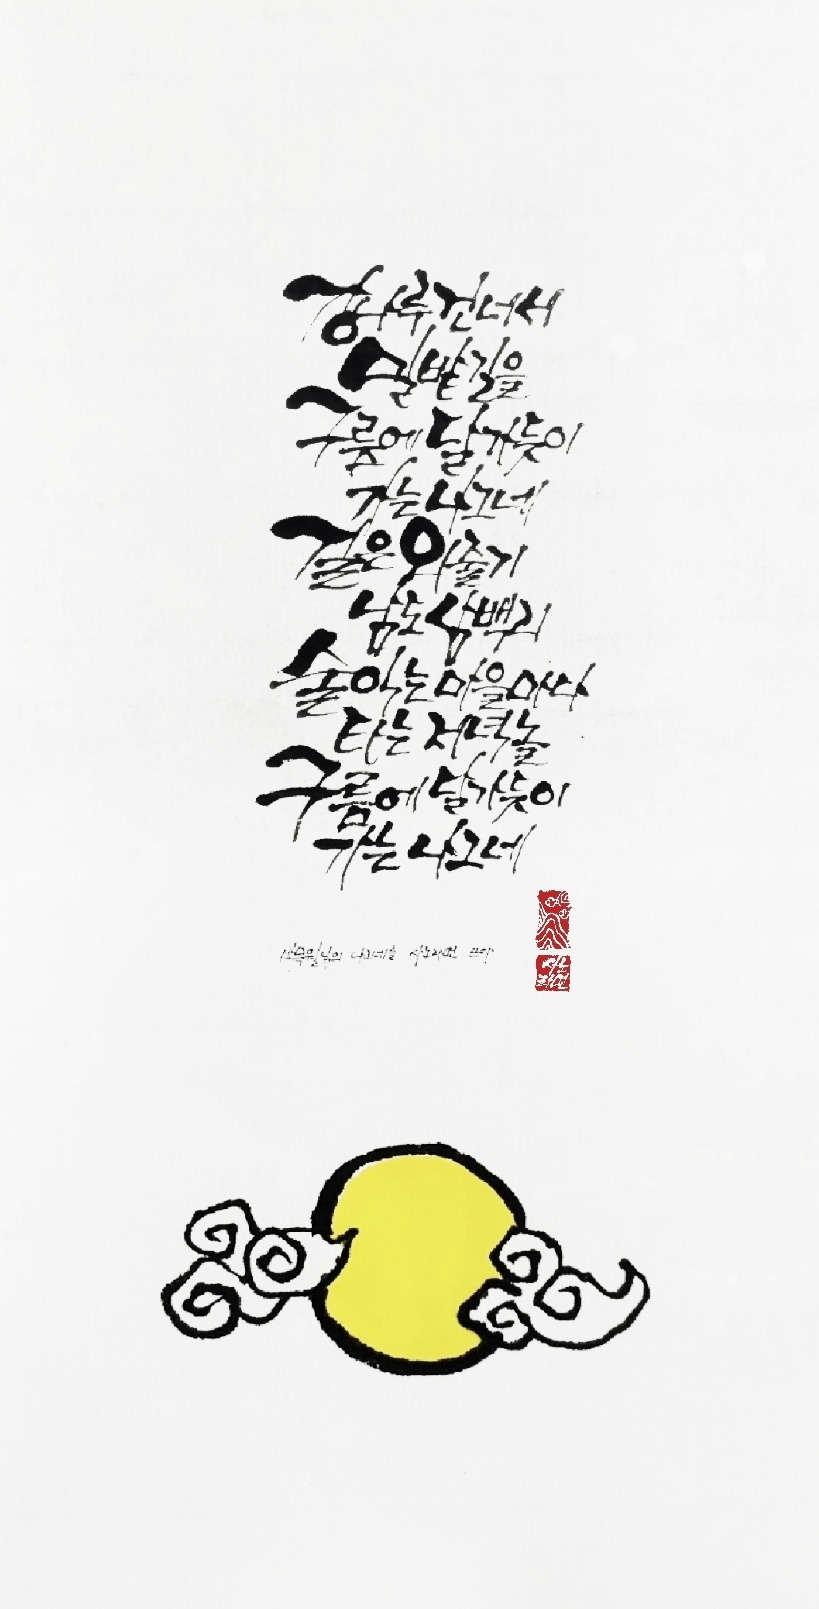 강나루 건너서
밀밭길을
구름에 달가듯이
가는 나그네
길은 외줄기
남도 삼백리
술익는 마을마다
타는 저녁놀
구름에 달가듯이
가는 나그네
나그네를 쓰다